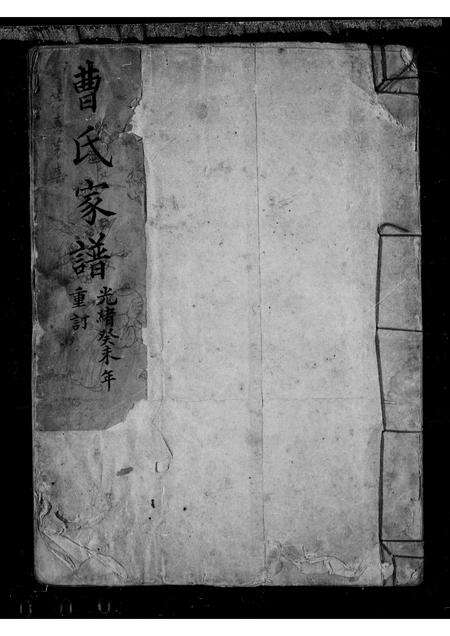 曹氏家譜
光緒癸未年
重訂